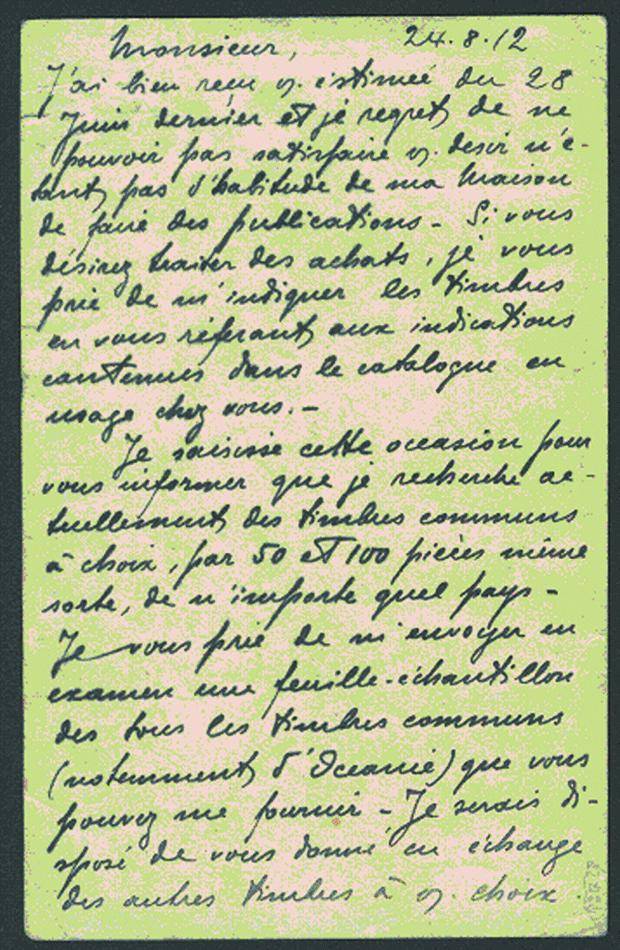 Monsieur, 24.8.12
J'ai bien reçu v. estimée du 28
Juin dernier et je regrets de ne
pouvoir pas satisfaire v. desir n'é-
tant pas d'habitude de ma Maison
de faire des publications - Si vous
désirez traiter des achats, je vous
prie de m'indiquer les timbres
en vous réferant aux indications
contenues dans le catalogue en
usage chez vous. -
Je saisisse cette occasion pour
vous informer que je recherche ac-
tuellement des timbres communs
à choix, par 50 et 100 pièces même
sorte, de n'importe quel pays -
Je vous prie de m'envoyer en
examen une feuille-échantillon
des tous les timbres communs
(notemment d'Oceanie) que vous
pouvez me fournir - Je serais di-
sposé de vous donné en échange
des autres timbres à v. choix